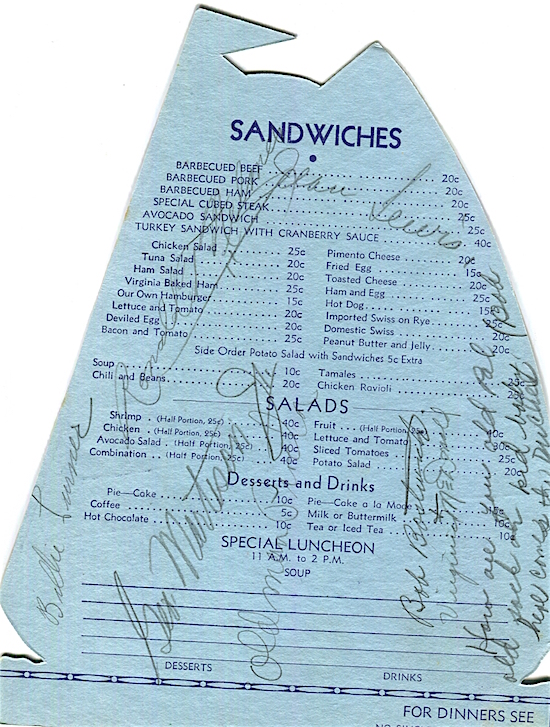 SANDWICHES
BARBECUED BEEF 20c
BARBECUED PORK 20c
BARBECUED HAM 20c
SPECIAL CUBED STEAK 25c
AVOCADO SANDWICH 20c
TURKEY SANDWICH WITH CRANBERRY SAUCE 40c
Chicken Salad 25c
Tuna Salad 20c
Ham Salad 20c
Virginia Baked Ham 25c
Our Own Hamburger 15c
Lettuce and Tomato 20c
Deviled Egg 20c
Bacon and Tomato 25c
Pimento Cheese 20c
Fried Egg 15c
Toasted Cheese 20c
Ham and Egg 25c
Hot Dog
Imported Swiss on Rye 25c
Domestic Swiss 20c
Peanut Butter and Jelly 20c
Side Order Potato Salad with Sandwiches 5c Extra
Soup 10c
Chili and Beans 20c
Tamales
Chicken Ravioli
SALADS
Shrimp (Half Portion, 25c) 40c
Chicken (Half Portion, 25c) 40c
Avocado Salad (Half Portion, 25c) 40c
Combination (Half Portion, 25c) 40c
Fruit (Half Portion, 25c)
Lettuce and Tomato
Sliced Tomatoes
Potato Salad 20c
Desserts and Drinks
Pie—Cake 10c
Coffee 5c
Hot Chocolate 10c
Pie—Cake a la Mode 15c
Milk or Buttermilk 10c
Tea or Iced Tea 10c
SPECIAL LUNCHEON
11 A.M. to 2 P.M.
SOUP
DESSERTS
DRINKS
FOR DINNERS SEE
Billie Turner
Ben
Bob
Virginia
How are you old pal Bob
old sock or kid baby
here comes the